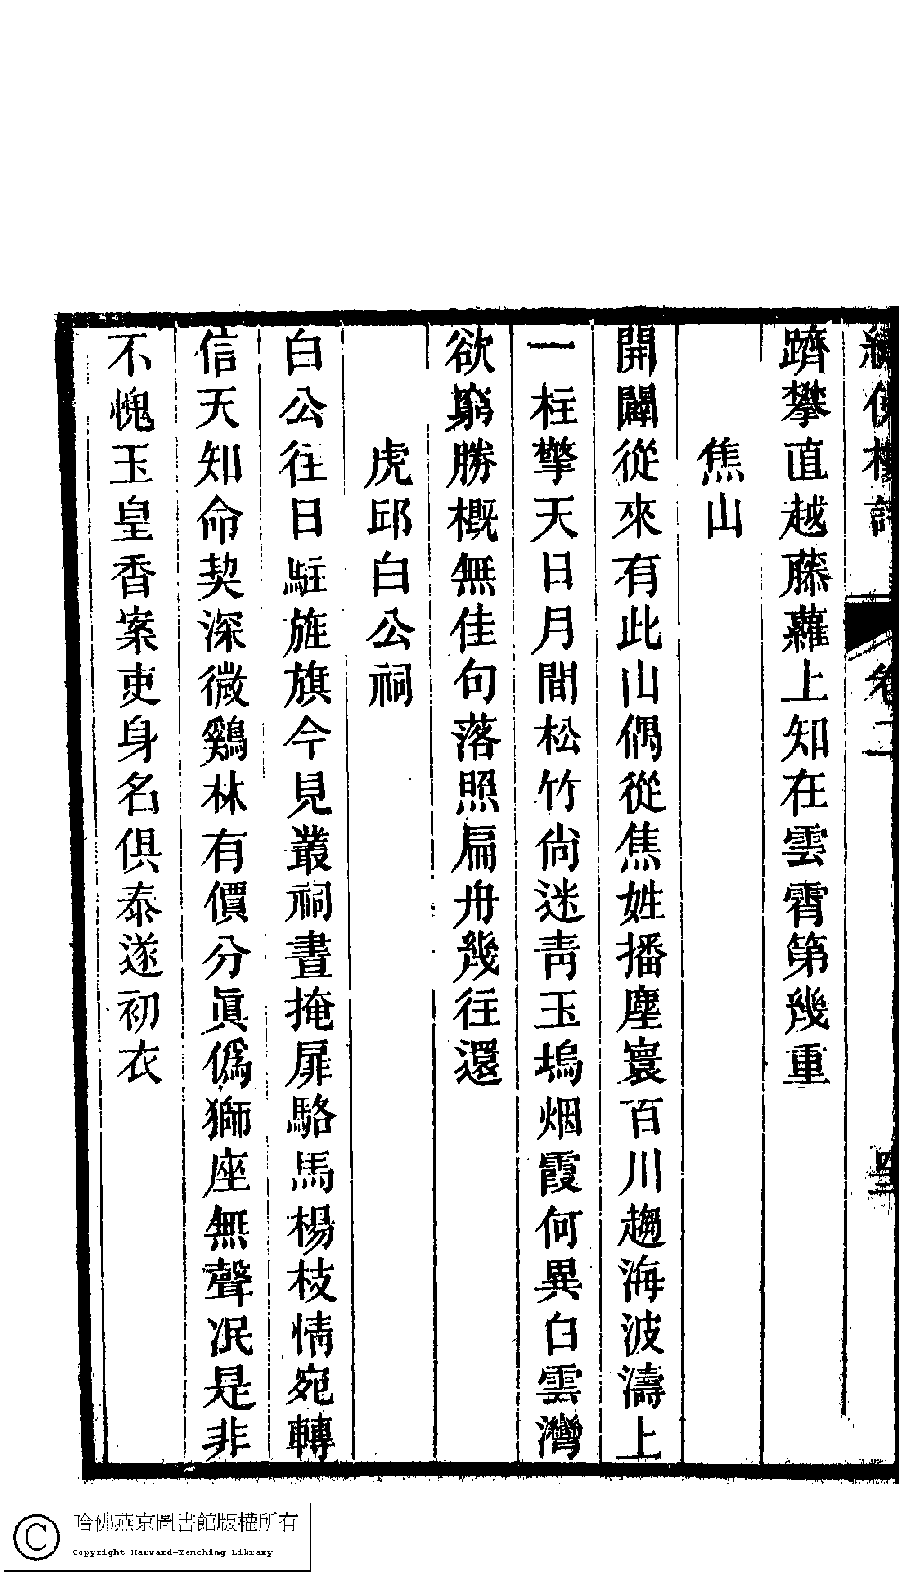 繡佛樓詩 卷二
躋攀直越藤蘿上知在雲霄第幾重
焦山
開闢從來有此山偶從焦姓播塵寰百川趨海波濤上
一柱擎天日月間松竹尙迷靑玉塢烟霞何異白雲灣
欲窮勝槪無佳句落照扁舟幾往還
虎邱白公祠
白公往日駐旌旗今見叢祠晝掩扉駱馬楊枝情宛轉
信天知命契深微鷄林有價分眞僞獅座無聲泯是非
不愧玉皇香案吏身名俱泰遂初衣
哈佛燕京圖書館版權所有
Copyright Harvard-Yenching Library